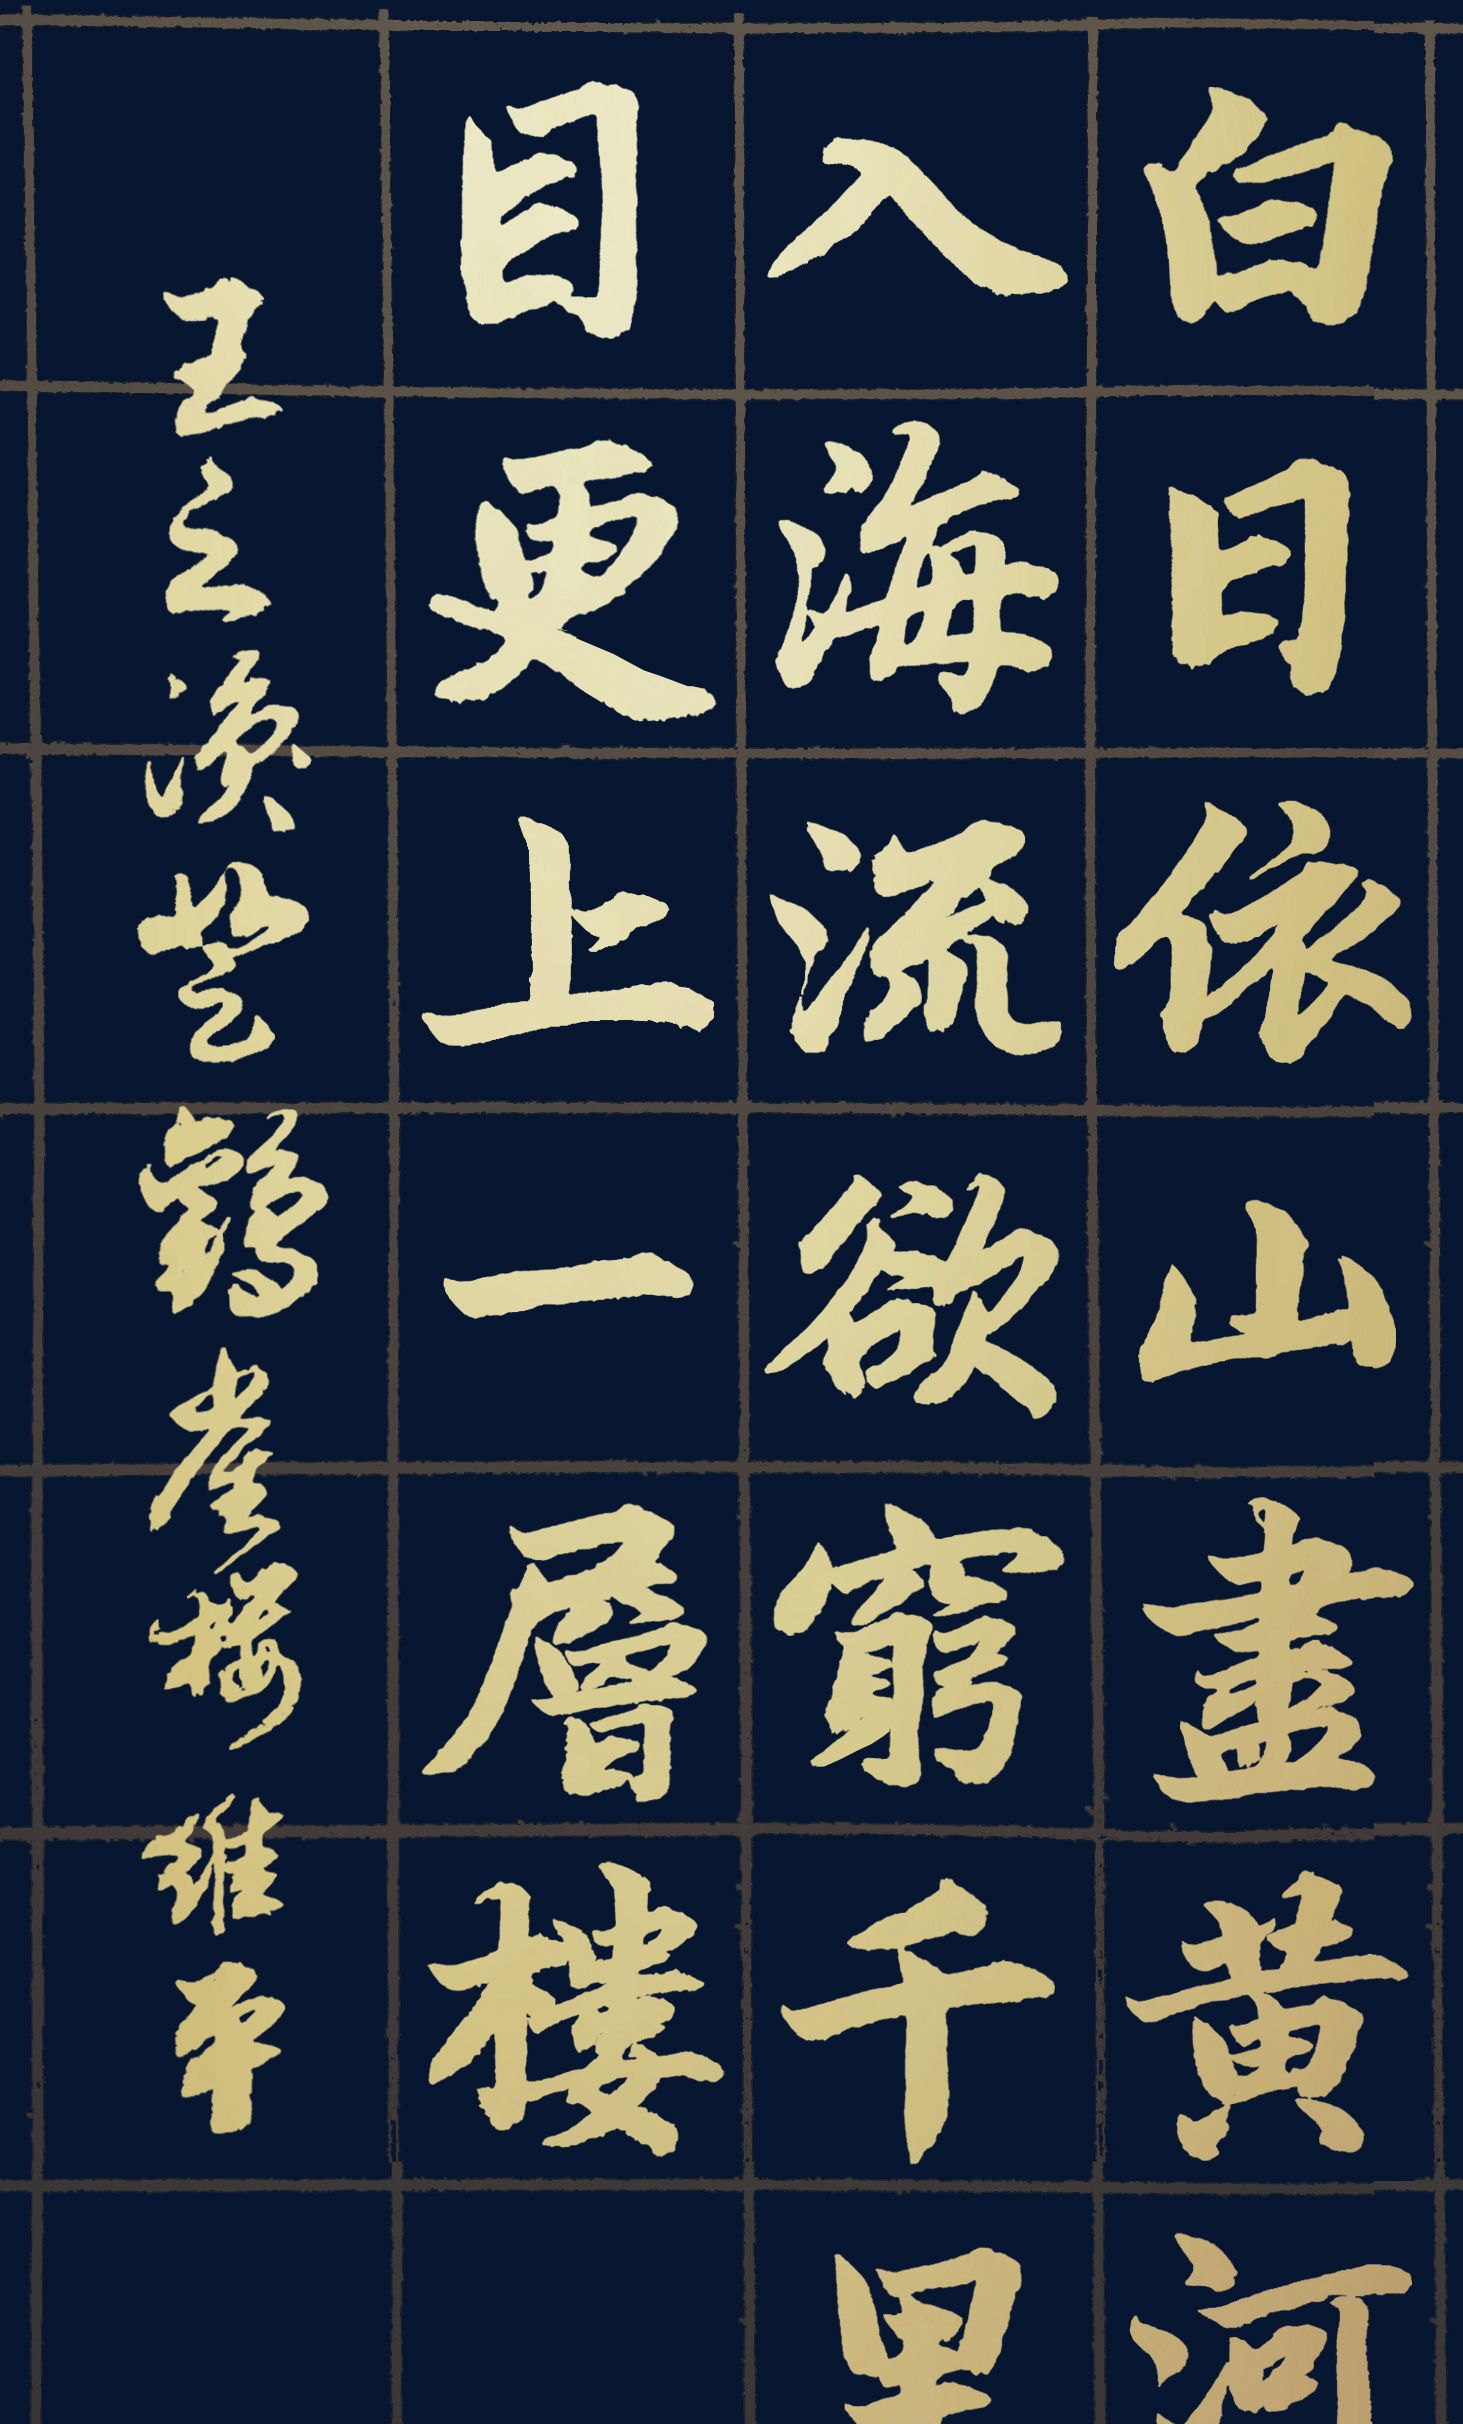 白日依山盡黃河
入海流欲窮千里
目更上一層樓
王之渙登鸛雀樓 維平